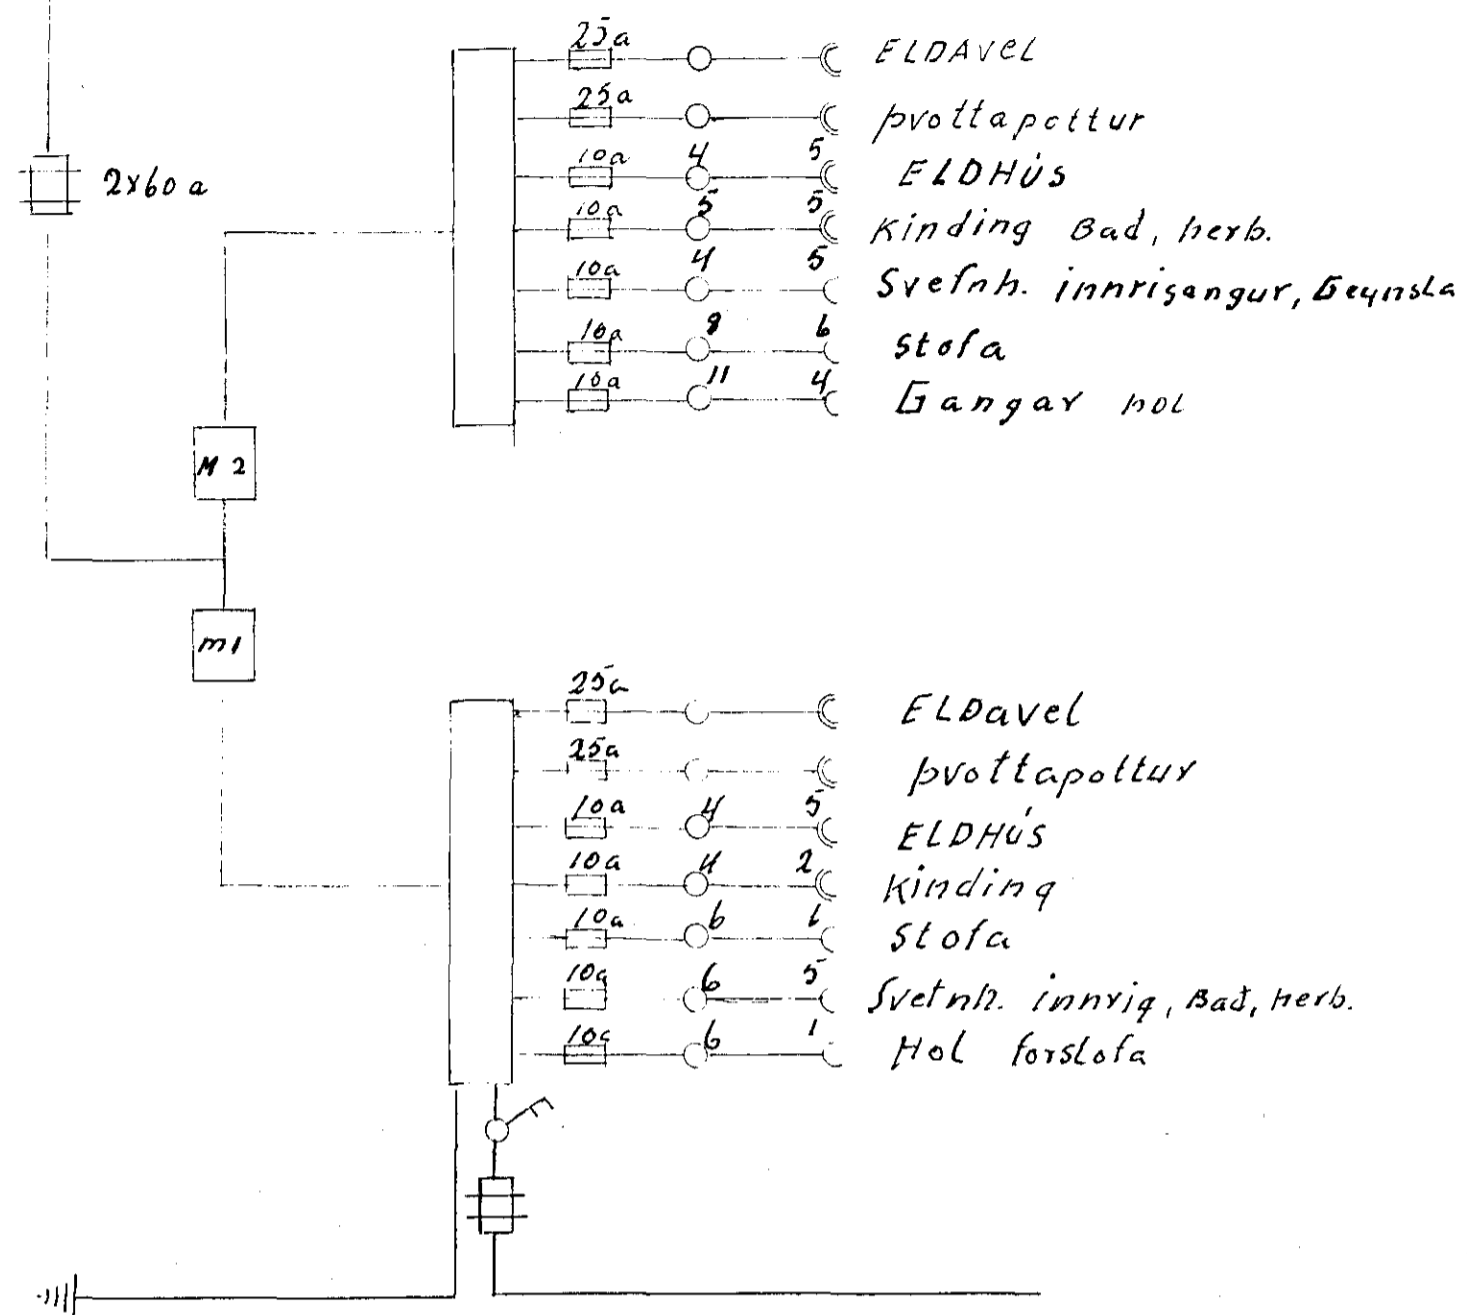 25a ELDAVEL
25a þvottapottur
2x60 a
10a 4 5 ELDHÚS
10a 5 5 Kinding Bað, herb.
10a 4 5 Svefnh. innrigangur, Geymsla
10a 9 6 Stofa
10a 11 4 Gangar hol
M 2
m1
25a ELDavel
25a þvottapottur
10a 4 5 ELDHÚS
10a 4 2 Kinding
10a 6 6 Stofa
10a 6 5 Svefnh. innrig, Bað, herb.
10a 6 1 Hol forstofa